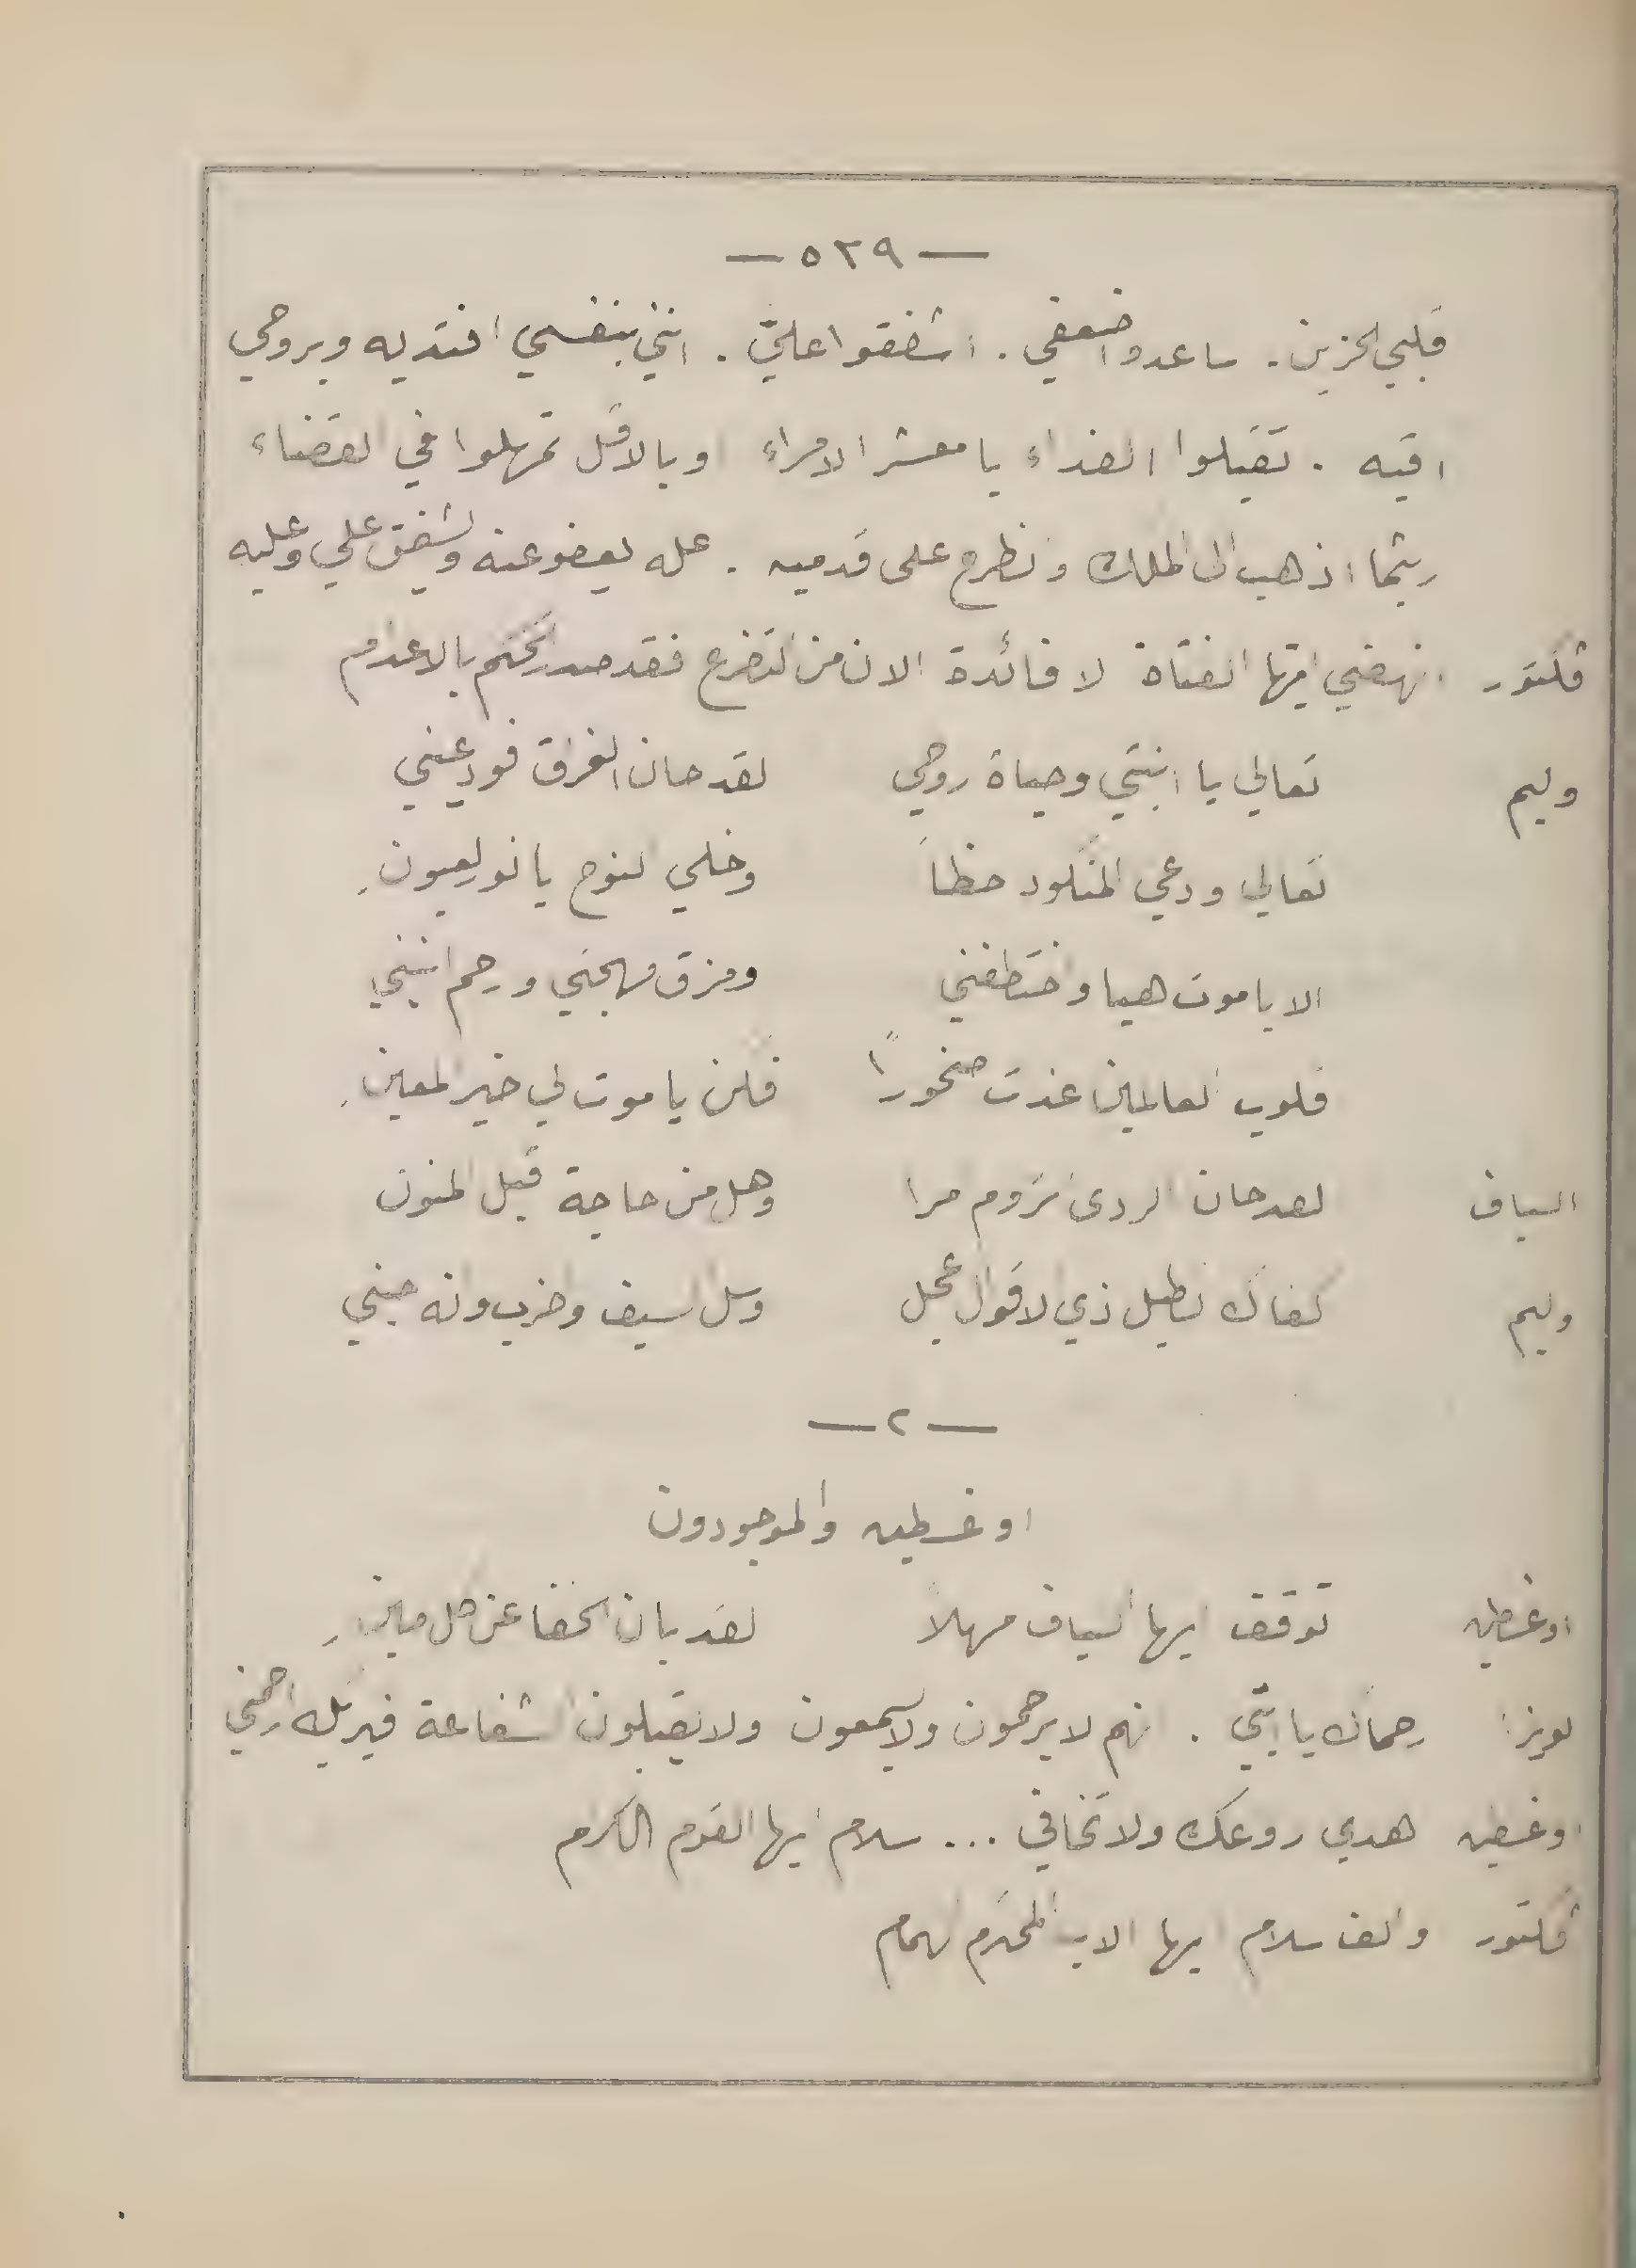 — ٥٣٩ —
قلبي الحزين . ساعدوا ضعفي . اشفقوا عليّ . انني بنفسي افتديه وبروحي
اقيه . تقبلوا الفداء يا معشر الامراء وبالاقل تمهلوا في القضاء
ريثما اذهب الى الملك وانطرح على قدميه . عله يعفو عنه ويشفق علي وعليه
فكتور انهضي ايتها الفتاة لا فائدة الان من التضرع فقد صدر الحكم بالاعدام
وليم تعالي يا ابنتي وحياة روحي لقد حان الفراق فودعيني
تعالي ودعي المنكود حظاً وخلي النوح يا نور العيون
الا يا موت هيا واختطفني ومزق مهجتي وارحم انيني
قلوب العالمين غدت صخوراً فكن يا موت لي خير المعين
السياف لقد حان الردى اتروم امرا وهل من حاجة قبل المنون
وليم كفاك تطيل ذي الاقوال عجل وسل السيف واضرب وانه حيني
— ٢ —
اوغسطين والموجودون
اوغسطين توقف ايها السياف مهلاً لقد بان الخفا عن كل مين
لويزا رحماك يا ابتي . انهم لا يرحمون ولا يسمعون ولا يقبلون الشفاعة فبربك ارحمني
اوغسطين هدي روعك ولا تخافي ... سلام ايها القوم الكرام
فكتور والف سلام ايها الاب المحترم الهمام